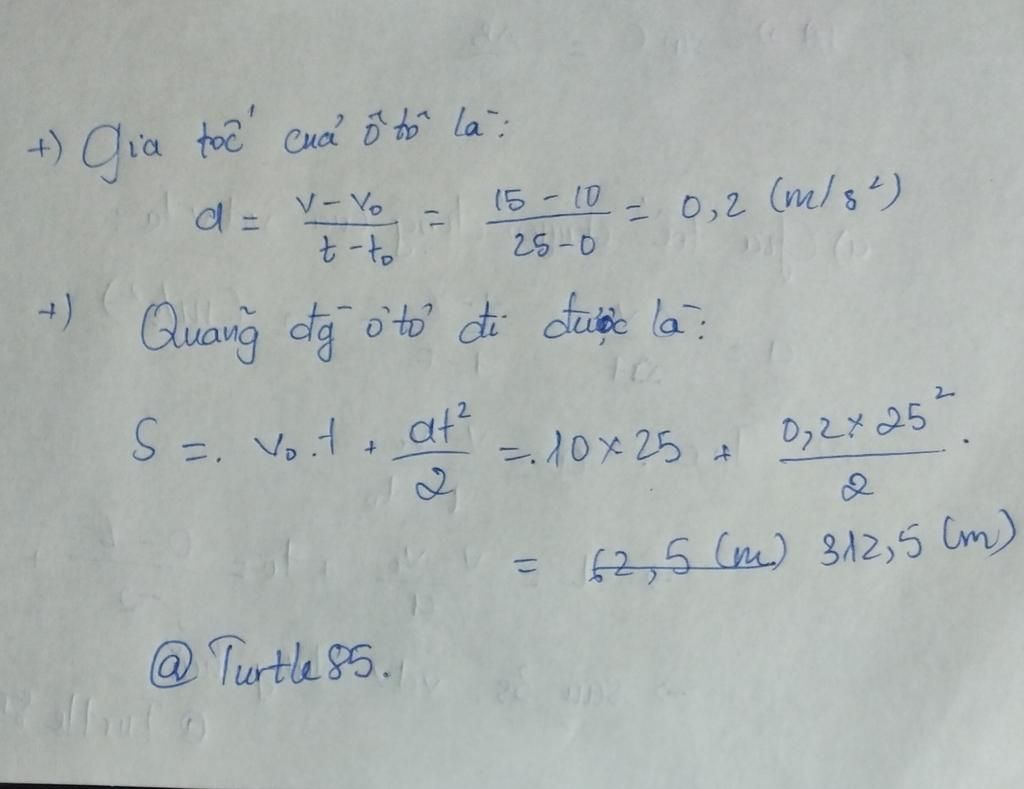 +) Gia tốc của ô tô là:
a = \frac{v - v_0}{t - t_0} = \frac{15 - 10}{25 - 0} = 0,2 (m/s²)
+) Quãng đg ô tô đi được là:
S =. v_0.t + \frac{at^2}{2} =. 10 × 25 + \frac{0,2 × 25^2}{2}.
= ~~62,5 (m)~~ 312,5 (m)
@Turtle85.